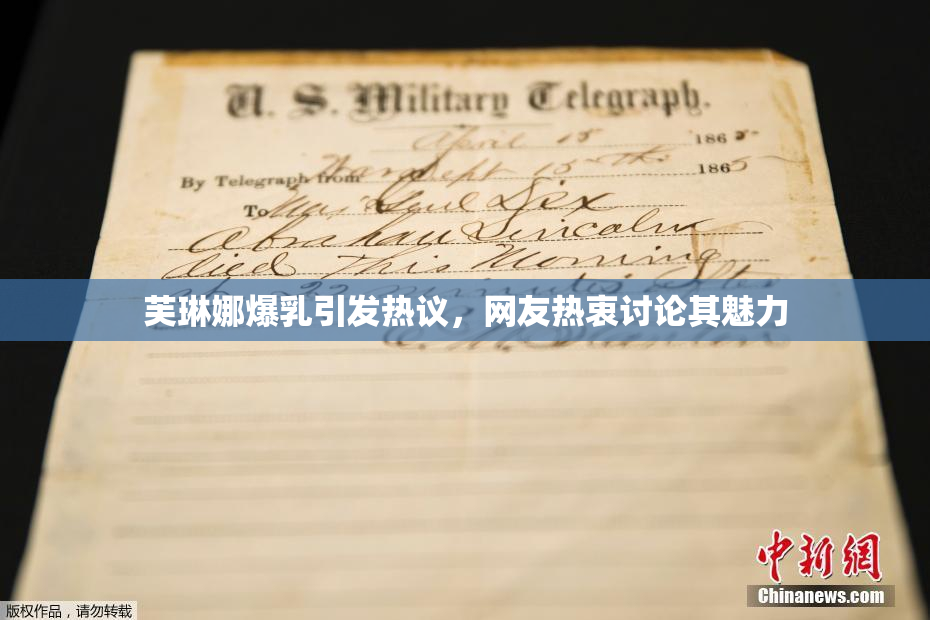 U. S. Military Telegraph.
April 15 1865
By Telegraph from War Dept 15th 1865
To Maj Genl Dix
Abraham Lincoln
died This Morning
at 22 minutes after
芙琳娜爆乳引发热议，网友热衷讨论其魅力
E. M. Stanton
中新网
Chinanews.com
版权作品，请勿转载